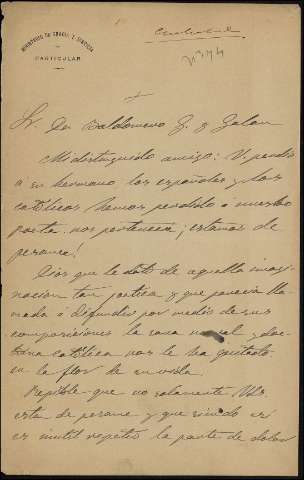 MINISTERIO DE GRACIA Y JUSTICIA
PARTICULAR
Nº 74
Sr. Dn Baldomero G. y Galan
Mi distinguido amigo: V. perdió
a su hermano, los españoles y los
católicos hemos perdido a nuestro
poeta: nos pertenecia; ¡estamos de
pesame!
Dios que le dotó de aquella imagi-
nacion tan poetica y que parecia lla-
mada a difundir por medio de sus
composiciones la sana moral y doc-
trina catolica nos le ha quitado
en la flor de su vida.
Repito que no solamente Vds.
esta de pesame y que siendo asi
es inutil repetir la parte de dolor